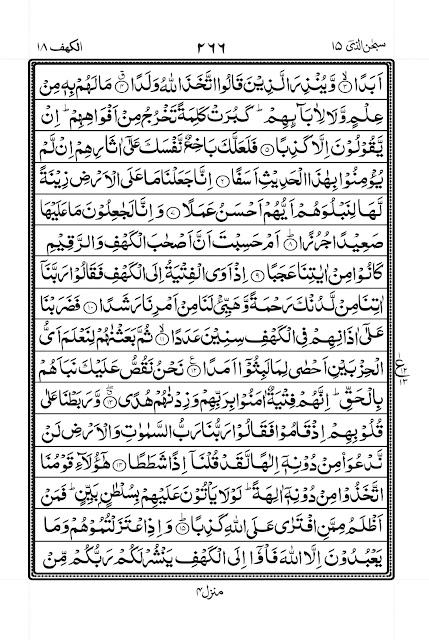 سبحٰن الذی ١٥ ٢٦٦ الكهف ١٨
اَبَدًا ۙ﴿۳﴾ وَّ يُنْذِرَ الَّذِيْنَ قَالُوا اتَّخَذَ اللّٰهُ وَلَدًا ۗ﴿۴﴾ مَا لَهُمْ بِهٖ مِنْ
عِلْمٍ وَّ لَا لِاٰبَآىِٕهِمْ ؕ كَبُرَتْ كَلِمَةً تَخْرُجُ مِنْ اَفْوَاهِهِمْ ؕ اِنْ
يَّقُوْلُوْنَ اِلَّا كَذِبًا ﴿۵﴾ فَلَعَلَّكَ بَاخِعٌ نَّفْسَكَ عَلٰۤى اٰثَارِهِمْ اِنْ لَّمْ
يُؤْمِنُوْا بِهٰذَا الْحَدِيْثِ اَسَفًا ﴿۶﴾ اِنَّا جَعَلْنَا مَا عَلَى الْاَرْضِ زِيْنَةً
لَّهَا لِنَبْلُوَهُمْ اَيُّهُمْ اَحْسَنُ عَمَلًا ﴿۷﴾ وَ اِنَّا لَجٰعِلُوْنَ مَا عَلَيْهَا
صَعِيْدًا جُرُزًا ؕ﴿۸﴾ اَمْ حَسِبْتَ اَنَّ اَصْحٰبَ الْكَهْفِ وَ الرَّقِيْمِ ۙ
كَانُوْا مِنْ اٰيٰتِنَا عَجَبًا ﴿۹﴾ اِذْ اَوَى الْفِتْيَةُ اِلَى الْكَهْفِ فَقَالُوْا رَبَّنَاۤ
اٰتِنَا مِنْ لَّدُنْكَ رَحْمَةً وَّ هَيِّئْ لَنَا مِنْ اَمْرِنَا رَشَدًا ﴿۱۰﴾ فَضَرَبْنَا
عَلٰۤى اٰذَانِهِمْ فِي الْكَهْفِ سِنِيْنَ عَدَدًا ۙ﴿۱۱﴾ ثُمَّ بَعَثْنٰهُمْ لِنَعْلَمَ اَيُّ
الْحِزْبَيْنِ اَحْصٰى لِمَا لَبِثُوْۤا اَمَدًا ﴿۱۲﴾ نَحْنُ نَقُصُّ عَلَيْكَ نَبَاَهُمْ
بِالْحَقِّ ؕ اِنَّهُمْ فِتْيَةٌ اٰمَنُوْا بِرَبِّهِمْ وَ زِدْنٰهُمْ هُدًى ۖ﴿۱۳﴾ وَّ رَبَطْنَا عَلٰى
قُلُوْبِهِمْ اِذْ قَامُوْا فَقَالُوْا رَبُّنَا رَبُّ السَّمٰوٰتِ وَ الْاَرْضِ لَنْ
نَّدْعُوَا۠ مِنْ دُوْنِهٖۤ اِلٰهًا لَّقَدْ قُلْنَاۤ اِذًا شَطَطًا ﴿۱۴﴾ هٰۤؤُلَآءِ قَوْمُنَا
اتَّخَذُوْا مِنْ دُوْنِهٖۤ اٰلِهَةً ؕ لَوْ لَا يَاْتُوْنَ عَلَيْهِمْ بِسُلْطٰنٍۭ بَيِّنٍ ؕ فَمَنْ
اَظْلَمُ مِمَّنِ افْتَرٰى عَلَى اللّٰهِ كَذِبًا ؕ﴿۱۵﴾ وَ اِذِ اعْتَزَلْتُمُوْهُمْ وَ مَا
يَعْبُدُوْنَ اِلَّا اللّٰهَ فَاْوٗۤا اِلَى الْكَهْفِ يَنْشُرْ لَكُمْ رَبُّكُمْ مِّنْ
منزل ۴